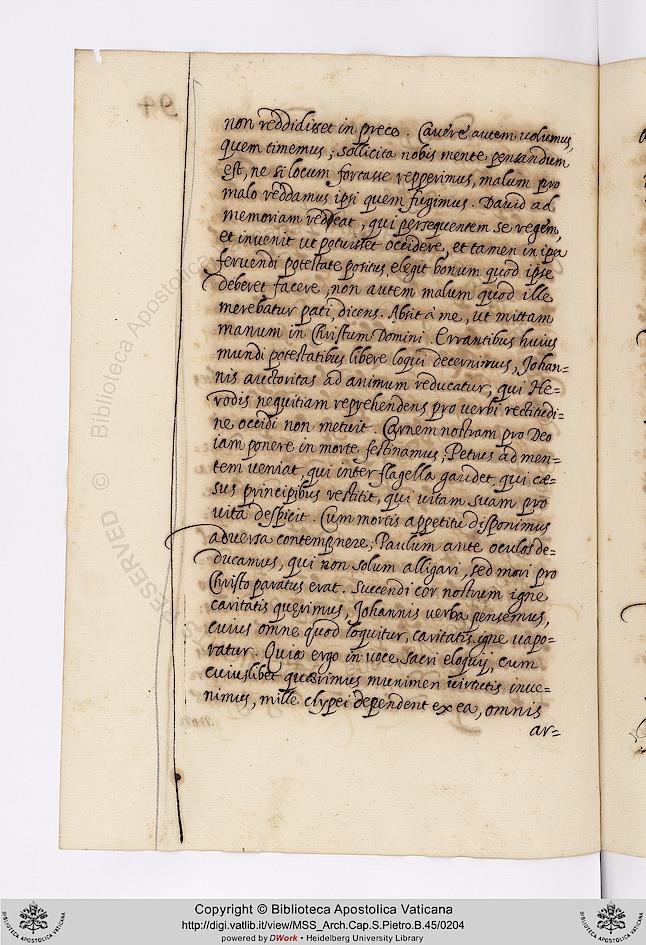 non reddidisset in prece. Cavére autem volumus,
quem timemus; sollicita nobis mente pensandum
est, ne si locum forcasse repperimus, malum pro
malo reddamus ipsi quem fugimus. David ad
memoriam redeat, qui persequentem se regem,
et invenit ut potuisset occidere, et tamen in ipa
feruendi potestate positus, elegit bonum quod ipse
deberet facere, non autem malum quod ille
merebatur pati, dicens. Absit à me, ut mittam
manum in Christum Domini. Errantibus huius
mundi potestatibus libere loqui decernimus, Johan=
nis auctoritas ad animum reducatur, qui He=
rodis nequitiam reprehendens pro verbi rectitudi=
ne occidi non metuit. Carnem nostram pro Deo
iam ponere in morte festinamus, Petrus ad men=
tem veniat, qui inter flagella gaudet, qui cæ=
sus principibus restitit, qui vitam suam pro
vita despicit. Cum mortis appetitu disponimus
adversa contemnere, Paulum ante oculos de=
ducamus, qui non solum alligari, sed mori pro
Christo paratus erat. Succendi cor nostrum igne
caritatis querimus, Johannis verba pensemus,
cuius omne quod loquitur, caritatis igne vapo=
ratur. Quia ergo in voce sacri eloquij, cum
cuiuslibet quærimus munimen virtutis inve=
nimus, mille clypei dependent ex ea, omnis
ar=
94
Biblioteca Apostolica
©
RESERVED
Copyright © Biblioteca Apostolica Vaticana
http://digi.vatlib.it/view/MSS_Arch.Cap.S.Pietro.B.45/0204
powered by DWork • Heidelberg University Library